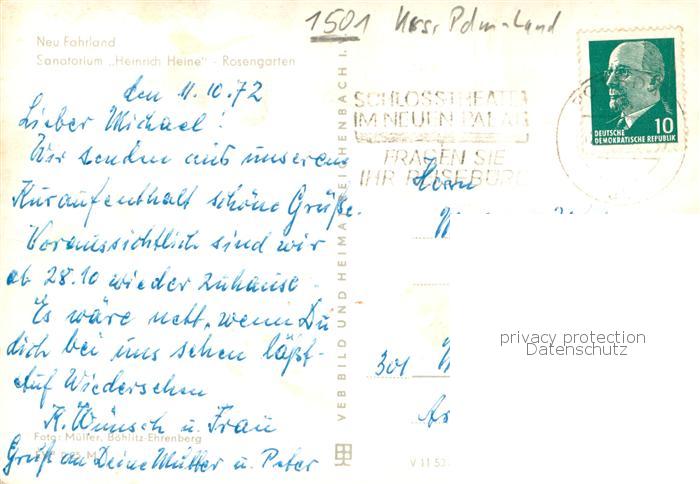 1501 Krs. Pdm-Land
Neu Fahrland
Sanatorium „Heinrich Heine" - Rosengarten
den 11.10.72
Lieber Michael!
Wir senden aus unserem
Kuraufenthalt schöne Grüße.
Voraussichtlich sind wir
ab 28.10 wieder zuhause.
Es wäre nett, wenn Du
dich bei uns sehen läßt.
Auf Wiedersehen
K. Wünsch u. Frau
Foto: Müller, Böhlitz-Ehrenberg
Gruß an Deine Mutter u. Peter
VEB BILD UND HEIMAT REICHENBACH I.
SCHLOSSTHEATER
IM NEUEN PALAIS
FRAGEN SIE
IHR REISEBÜRO
DEUTSCHE
DEMOKRATISCHE REPUBLIK
10
Herrn
301
V 11 52
privacy protection
Datenschutz